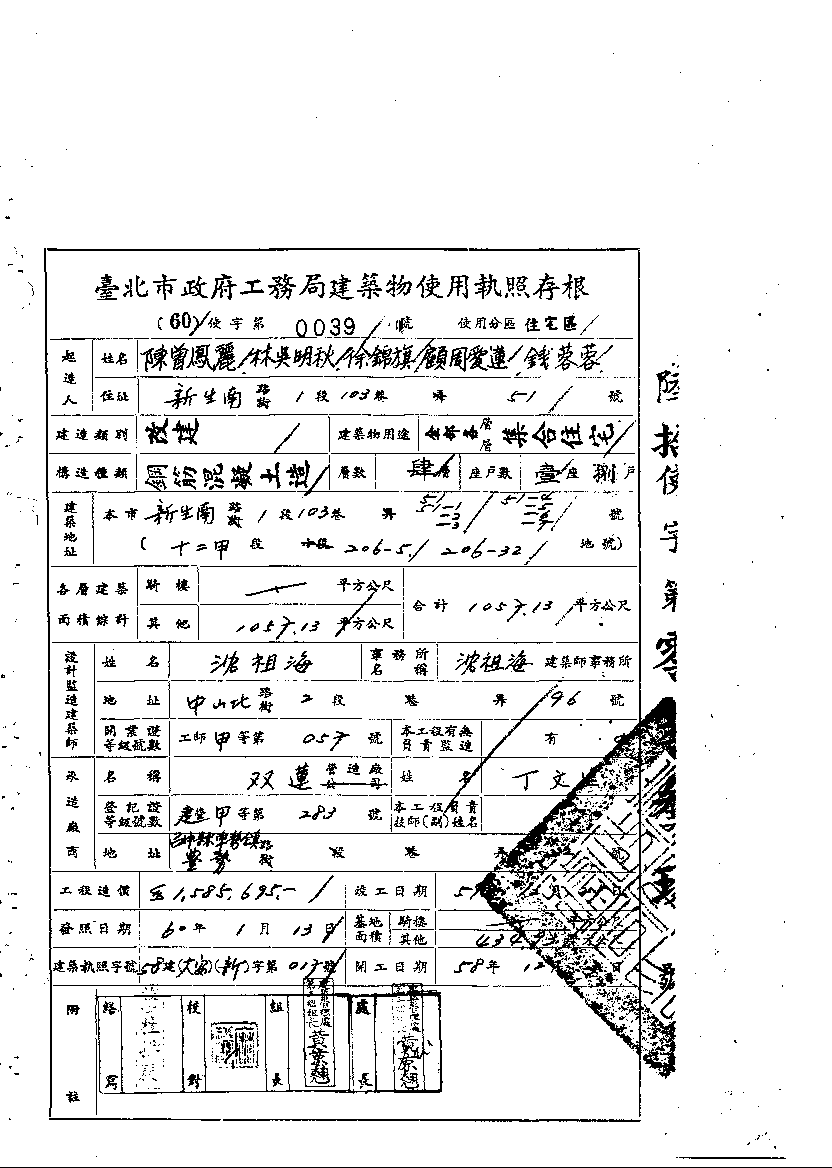 臺北市政府工務局建築物使用執照存根
(60)使字第 0039 號 使用分區 住宅區
起造人 姓名 陳曾鳳麗 林吳明秋 徐錦旗 顧周愛蓮 錢蓉蓉
住址 新生南 路街 1 段 103 巷 弄 51 號
建造類別 改建 建築物用途 全部各層 集合住宅
構造種類 鋼筋混凝土造 層數 肆層 座戶數 壹座 捌戶
建築地址 本市 新生南 路街 1 段 103 巷 弄 51 51-1 號
( 十二甲 段 小段 206-5 206-32 地號)
各層建築面積綜計 騎樓 — 平方公尺 合計 1057.13 平方公尺
其他 1057.13 平方公尺
設計監造建築師 姓名 沈祖海 事務所名稱 沈祖海 建築師事務所
地址 中山北 路街 2 段 巷 弄 96 號
開業證等級號數 工師 甲等第 057 號 本工程有無負責監造 有
承造廠商 名稱 双蓮 營造廠公司 姓名 丁文
登記證等級號數 建登 甲等第 283 號 本工程負責技師(副)姓名
地址 路街 段 巷 號
工程造價 1,585,695.- 竣工日期 日
發照日期 60年 1月 13日 基地面積 騎樓
其他 434.93
建築執照字號 58建(大安)(新)字第 017 號 開工日期 58年 12
附註 繕寫 校對 組長 黃葉翹 處長
陸拾使字第零